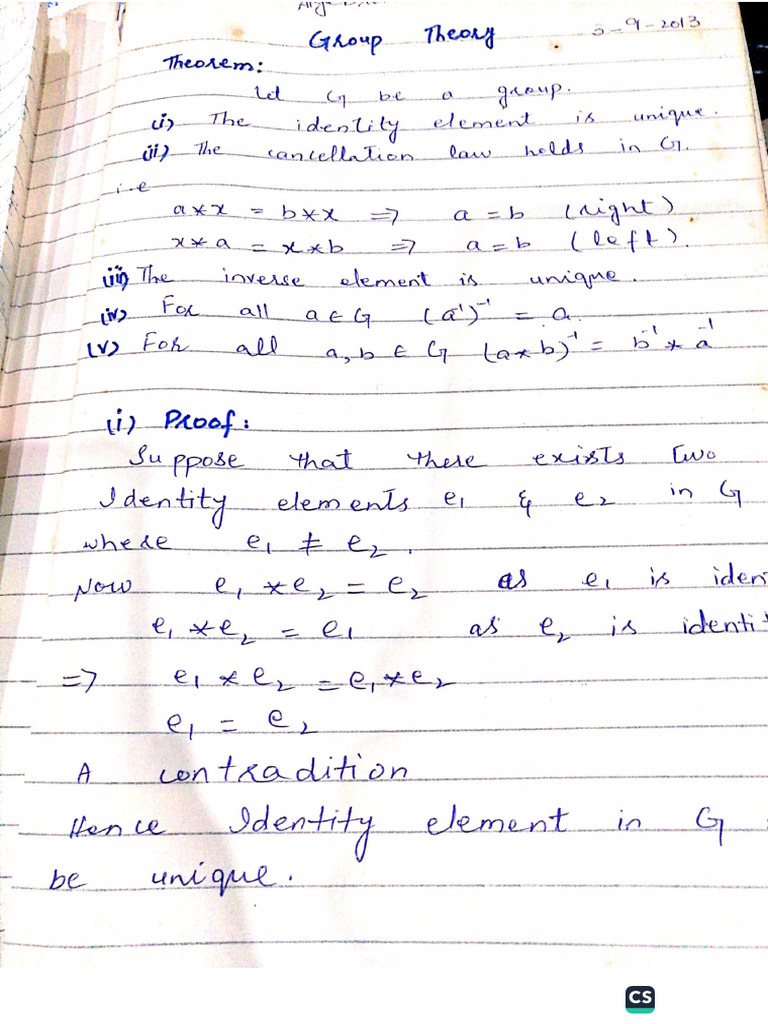 Group Theory 3-9-2013
Theorem:
Let G be a group.
(i) The identity element is unique.
(ii) The cancellation law holds in G.
i.e
a*x = b*x => a = b (right)
x*a = x*b => a = b (left).
(iii) The inverse element is unique.
(iv) For all a ∈ G (a⁻¹)⁻¹ = a.
(v) For all a, b ∈ G (a*b)⁻¹ = b⁻¹ * a⁻¹
(i) Proof:
Suppose that there exists two
Identity elements e₁ & e₂ in G
where e₁ ≠ e₂.
Now e₁ * e₂ = e₂ as e₁ is iden
e₁ * e₂ = e₁ as e₂ is identit
=> e₁ * e₂ = e₁ * e₂
e₁ = e₂
A contradition
Hence Identity element in G
be unique.
CS